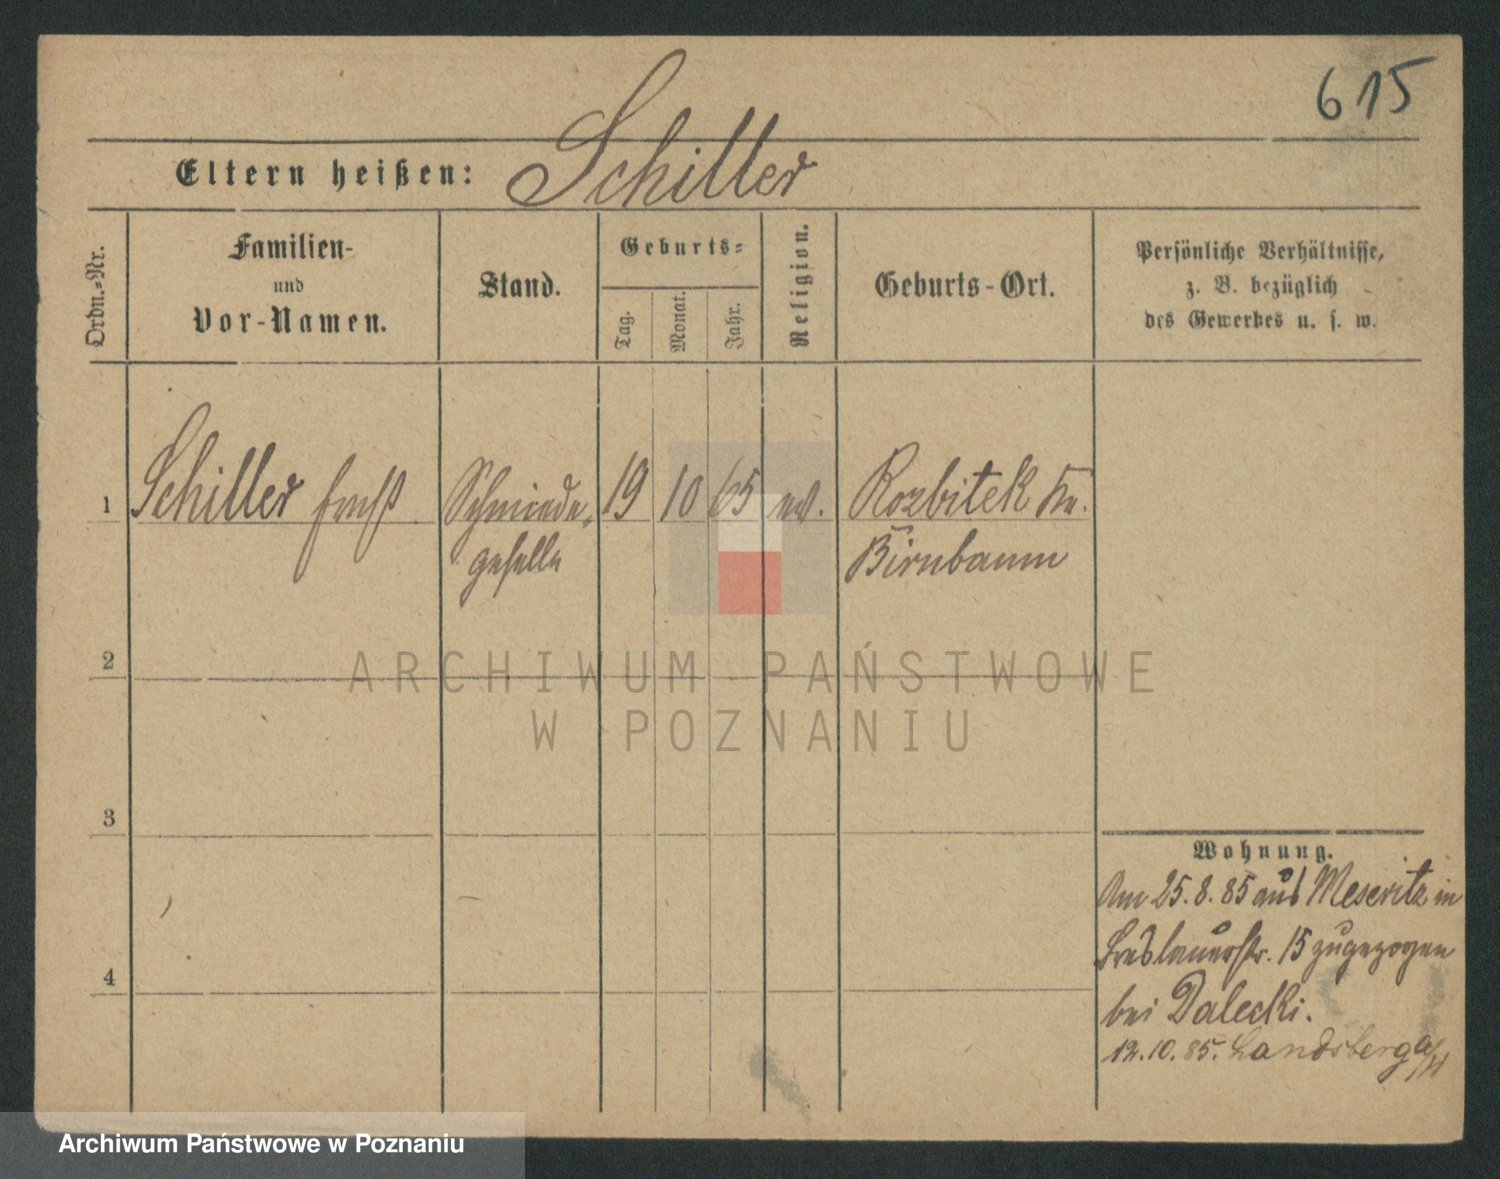 615
Eltern heißen: Schiller
Ordn.-Nr.
Familien-
und
Vor-Namen.
Stand.
Geburts-
Tag.
Monat.
Jahr.
Religion.
Geburts-Ort.
Persönliche Verhältnisse,
z. B. bezüglich
des Gewerbes u. s. w.
1 Schiller Ernst Schmiede- 19 10 65 ev. Rozbitek Kr.
geselle Birnbaum
2
3
4
Wohnung.
Am 25.8.85 aus Meseritz in
Breslauerstr. 15 zugezogen
bei Dalecki.
12.10.85. Landsberg a/W
ARCHIWUM PAŃSTWOWE
W POZNANIU
Archiwum Państwowe w Poznaniu